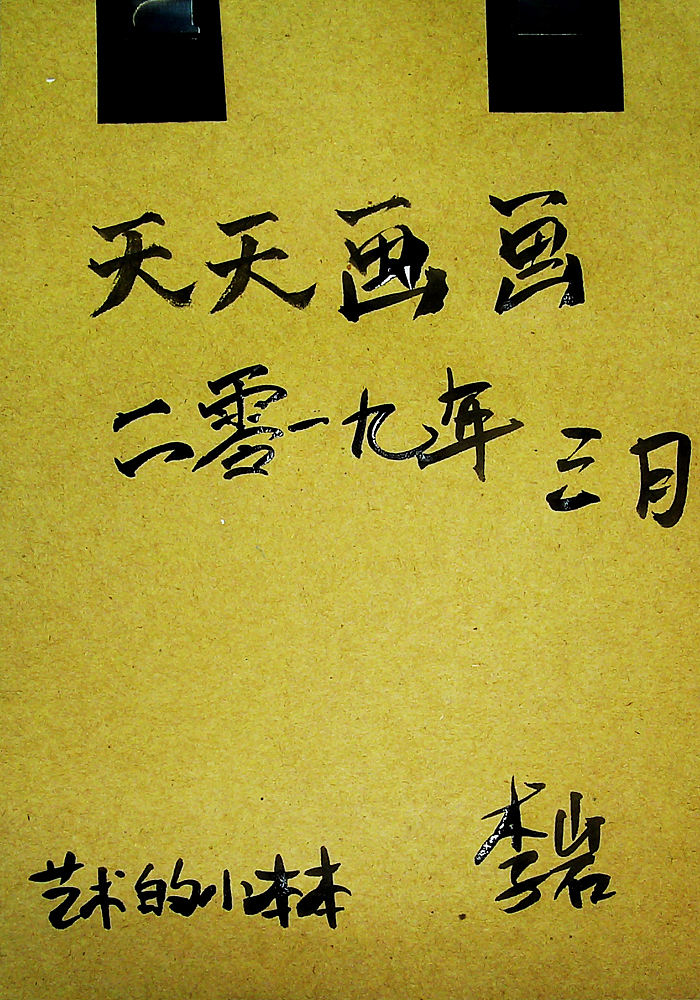 天天画画
二零一九年三月
李岩
艺术的小本本